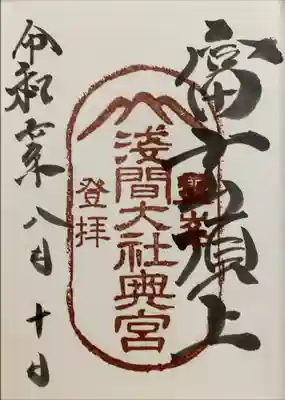 富士頂上
淺間大社奧宮
登拝
令和七年八月十日